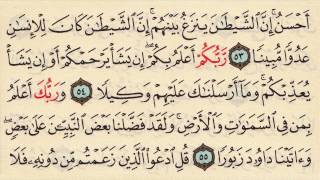 أَحْسَنُ ۚ إِنَّ ٱلشَّيْطَـٰنَ يَنزَغُ بَيْنَهُمْ ۚ إِنَّ ٱلشَّيْطَـٰنَ كَانَ لِلْإِنسَـٰنِ
عَدُوًّا مُّبِينًا ٥٣ رَّبُّكُمْ أَعْلَمُ بِكُمْ ۖ إِن يَشَأْ يَرْحَمْكُمْ أَوْ إِن يَشَأْ
يُعَذِّبْكُمْ ۚ وَمَآ أَرْسَلْنَـٰكَ عَلَيْهِمْ وَكِيلًا ٥٤ وَرَبُّكَ أَعْلَمُ
بِمَن فِى ٱلسَّمَـٰوَٰتِ وَٱلْأَرْضِ ۗ وَلَقَدْ فَضَّلْنَا بَعْضَ ٱلنَّبِيِّـۧنَ عَلَىٰ بَعْضٍ ۖ
وَءَاتَيْنَا دَاوُۥدَ زَبُورًا ٥٥ قُلِ ٱدْعُوا۟ ٱلَّذِينَ زَعَمْتُم مِّن دُونِهِۦ فَلَا